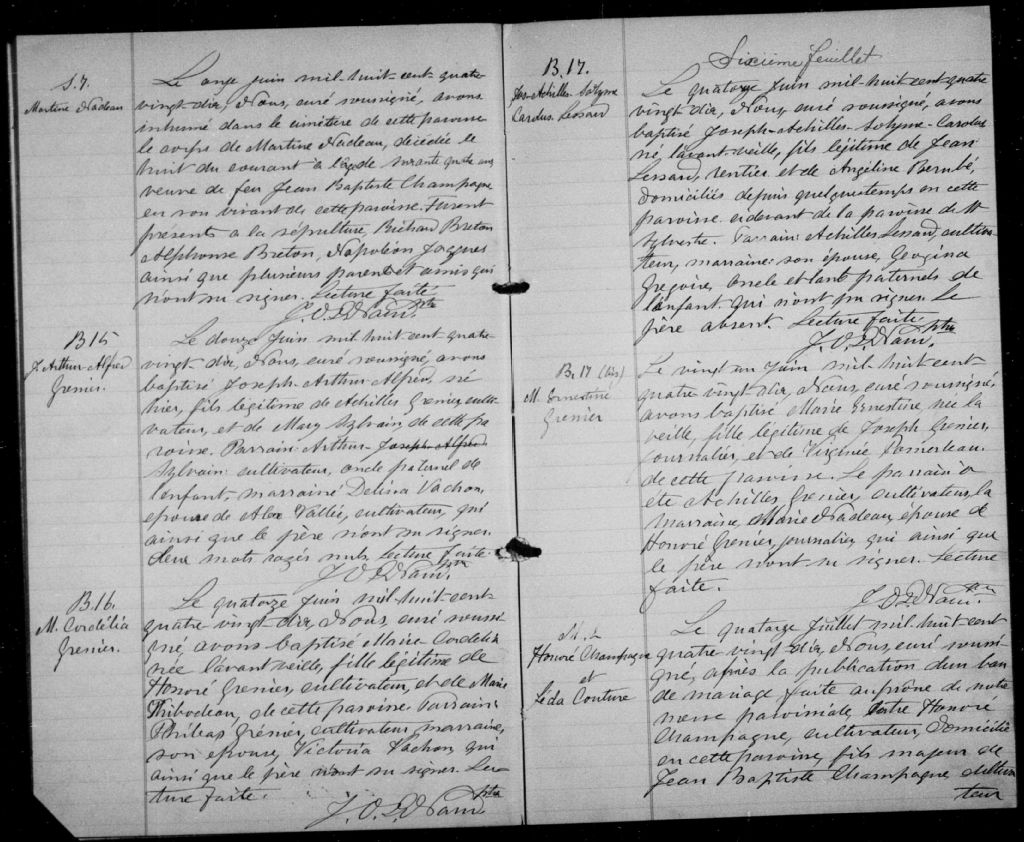 S. 7.
Martine Nadeau
Le onze juin mil-huit-cent-quatre
vingt-dix, Nous, curé soussigné, avons
inhumé dans le cimetière de cette paroisse
le corps de Martine Nadeau, décédée le
huit du courant à l'âge de soixante quatre ans
veuve de feu Jean Baptiste Champagne
en son vivant de cette paroisse. Furent
présents a la sépulture, Richard Breton
Alphonse Breton, Napoléon Jacques
ainsi que plusieurs parents et amis qui
n'ont su signer. Lecture faite.
B 15
J. Arthur-Alfred
Grenier.
Le douze juin mil-huit cent quatre-
vingt-dix, Nous, curé soussigné, avons
baptisé Joseph-Arthur-Alfred, né
hier, fils légitime de Achilles Grenier, culti-
vateur, et de Mary Sylvain de cette pa
roisse. Parrain Arthur Joseph-Alfred
Sylvain cultivateur, oncle paternel de
l'enfant-marraine Delina Vachon,
epouse de Alex Vallée, cultivateur, qui
ainsi que le père n'ont su signer.
deux mots rayés nuls, Lecture faite
B. 16.
M. Cordélia
Grenier.
Le quatorze juin mil-huit-cent-
quatre vingt-dix, Nous, curé soussi-
gné, avons baptisé Marie-Cordélia
née l'avant veille, fille légitime de
Honoré Grenier, cultivateur, et de Marie
Thibodeau, de cette paroisse. Parrain
Philéas Grenier, cultivateur, marraine,
son epouse, Victoria Vachon, qui
ainsi que le père n'ont su signer. Lec-
ture faite.
Sixième feuillet
B. 17.
Jos-Achilles-Solyme
Carolus. Lessard
Le quatorze Juin mil huit-cent-quatre
vingt dix, Nous, curé soussigné, avons
baptisé Joseph-Achilles-Solyme-Carolus
né, l'avant-veille, fils légitime de Jean
Lessard, rentier et de Angéline Bernbé,
domiciliés depuis quelque temps en cette
paroisse. cidevant de la paroisse de St
Sylvestre. Parrain: Achilles Lessard, cultiva-
teur, marraine: son épouse, Géorgina
Gregoire, oncle et tante paternels de
l'enfant. qui n'ont pu signer. Le
père absent. Lecture faite.
B. 17 (bis)
M. Ernestine
Grenier
Le vingt un Juin mil huit cent-
quatre vingt dix, Nous, curé soussigné,
avons baptisé Marie Ernestine, née la
veille, fille légitime de Joseph Grenier,
journalier, et de Virginie Pomerleau.
de cette paroisse. Le parrain a
été Achilles Grenier, cultivateur, la
marraine, Marie Nadeau, épouse de
Honoré Grenier, journalier, qui ainsi que
le père n'ont su signer. Lecture
faite.
Honoré Champagne
et
Léda Couture
Le quatorze Juillet mil-huit cent
quatre vingt-dix, Nous, curé soussi-
gné, après la publication d'un ban
de mariage faite au prône de notre
messe paroissiale, entre Honoré
Champagne, cultivateur, domicilié
en cette paroisse, fils majeur de
Jean Baptiste Champagne, cultiva
teur